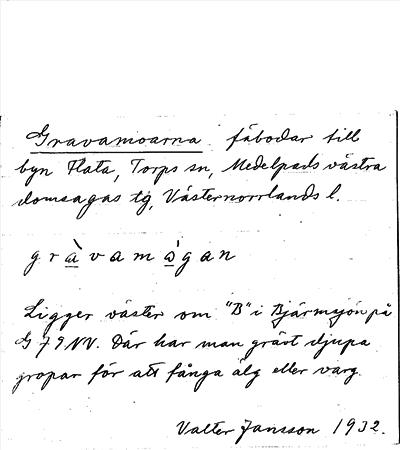 Gravamoarna fäbodar till
byn Flata, Torps sn, Medelpads västra
domsagas tg, Västernorrlands l.
gràvamògan
Ligger väster om "B" i Bjärmsjön på
G 79 NV. Där har man grävt djupa
gropar för att fånga älg eller varg.
Valter Jansson 1932.